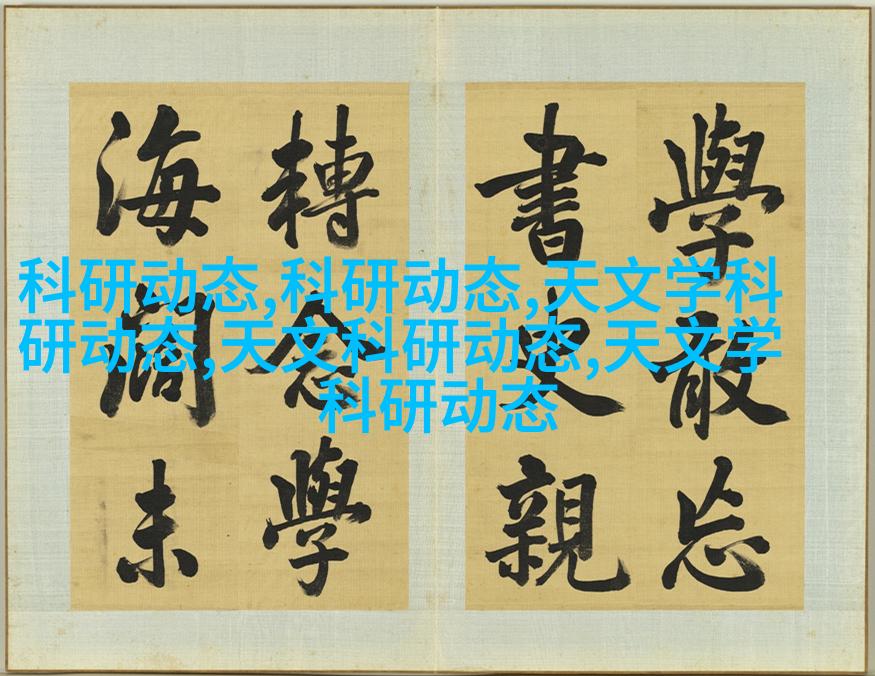 科研动态,科研动态,天文学科
研动态,天文科研动态,天文学
科研动态
學敢忘
書史親
轉念學
海闊未